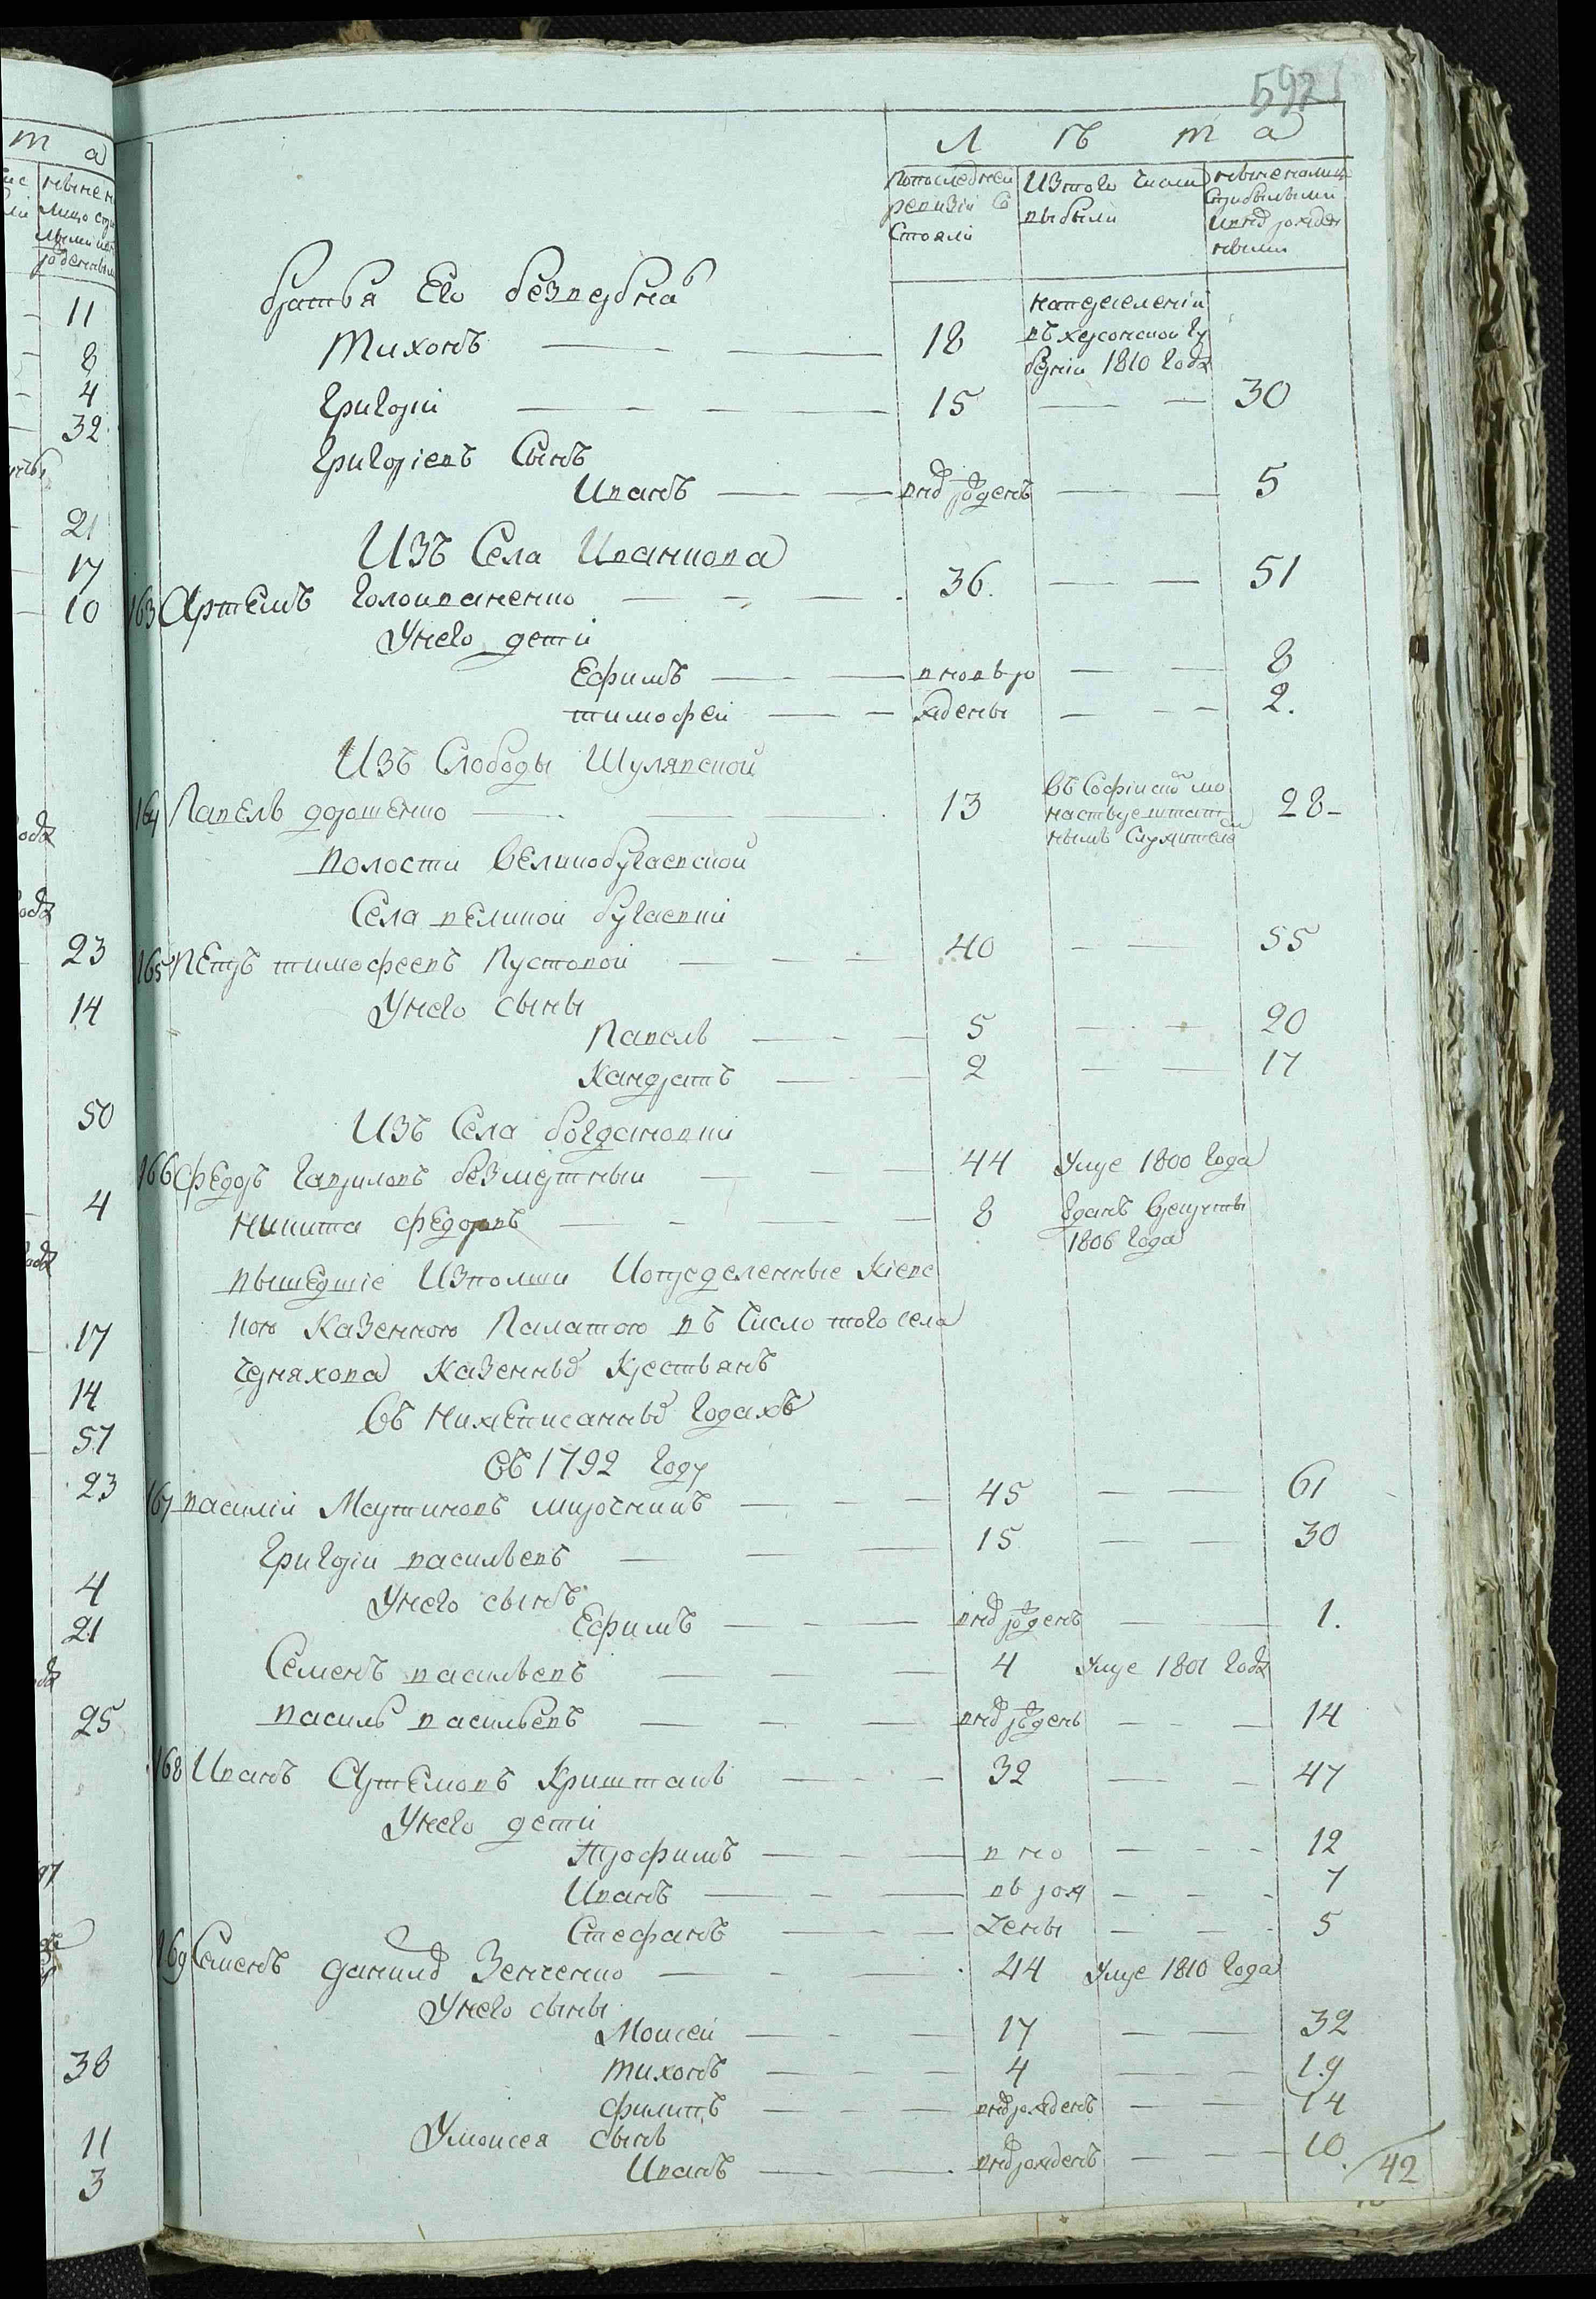 592
Л ѣ т а
Попоследней ревизіи Состояли
Изтого числа выбыли
ныне налицо Сприбылыми ивнов рожденными
братья Его безперечна
Тихонъ 18 напереселеніи въ херсонской губерніи 1810 Года
Григорій 15 30
Григоріевъ Сынъ
Иванъ внов рожденъ 5
Изъ Села Иванкова
163 Артемъ Голоиваненко 36. 51
Унего дети
Ефимъ вновь ро 8
тимофей жденны 2.
Изъ Слободы Шулявской
164 Павелъ дорошенко 13 Въ Софійской монастыр штатнымъ Служителем 28
Волости Великобугаевской
Села великой бугаевки
165 Петръ тимофеевъ Пустовой 40 55
Унего сыны
Павелъ 5 20
Кандратъ 2 17
Изъ Села богдановки
166 Федоръ Гавриловъ безмертный 44 Умре 1800 Года
Никита Федоровъ 8 Отданъ Врекруты 1806 Года
вышедшіе Изполши Иопределенные Кіевс
кою Казенною Палатою въ Число того села
Черняхова Казенныхъ Крестьянъ
Въ Нижеписанныхъ Годахъ
Въ 1792 Году
167 василій Мартиновъ мирочникъ 45 61
Григорій васильевъ 15 30
Унего сынъ
Ефимъ внов рожденъ 1.
Семенъ васильевъ 4 Умре 1801 Года
василь васильевъ внов рожденъ 14
168 Иванъ Артемовъ Криштапъ 32 47
Унего дети
Трофимъ вно 12
Иванъ вь рож 7
Стефанъ денны 5
169 Семенъ данилов Зенченко 44 Умре 1810 Года
Унего сыны
Моисей 17 32
тихонъ 4 19
филипъ внов рожденъ 14
Умоисея сынъ
Иванъ внов рожденъ 10
42